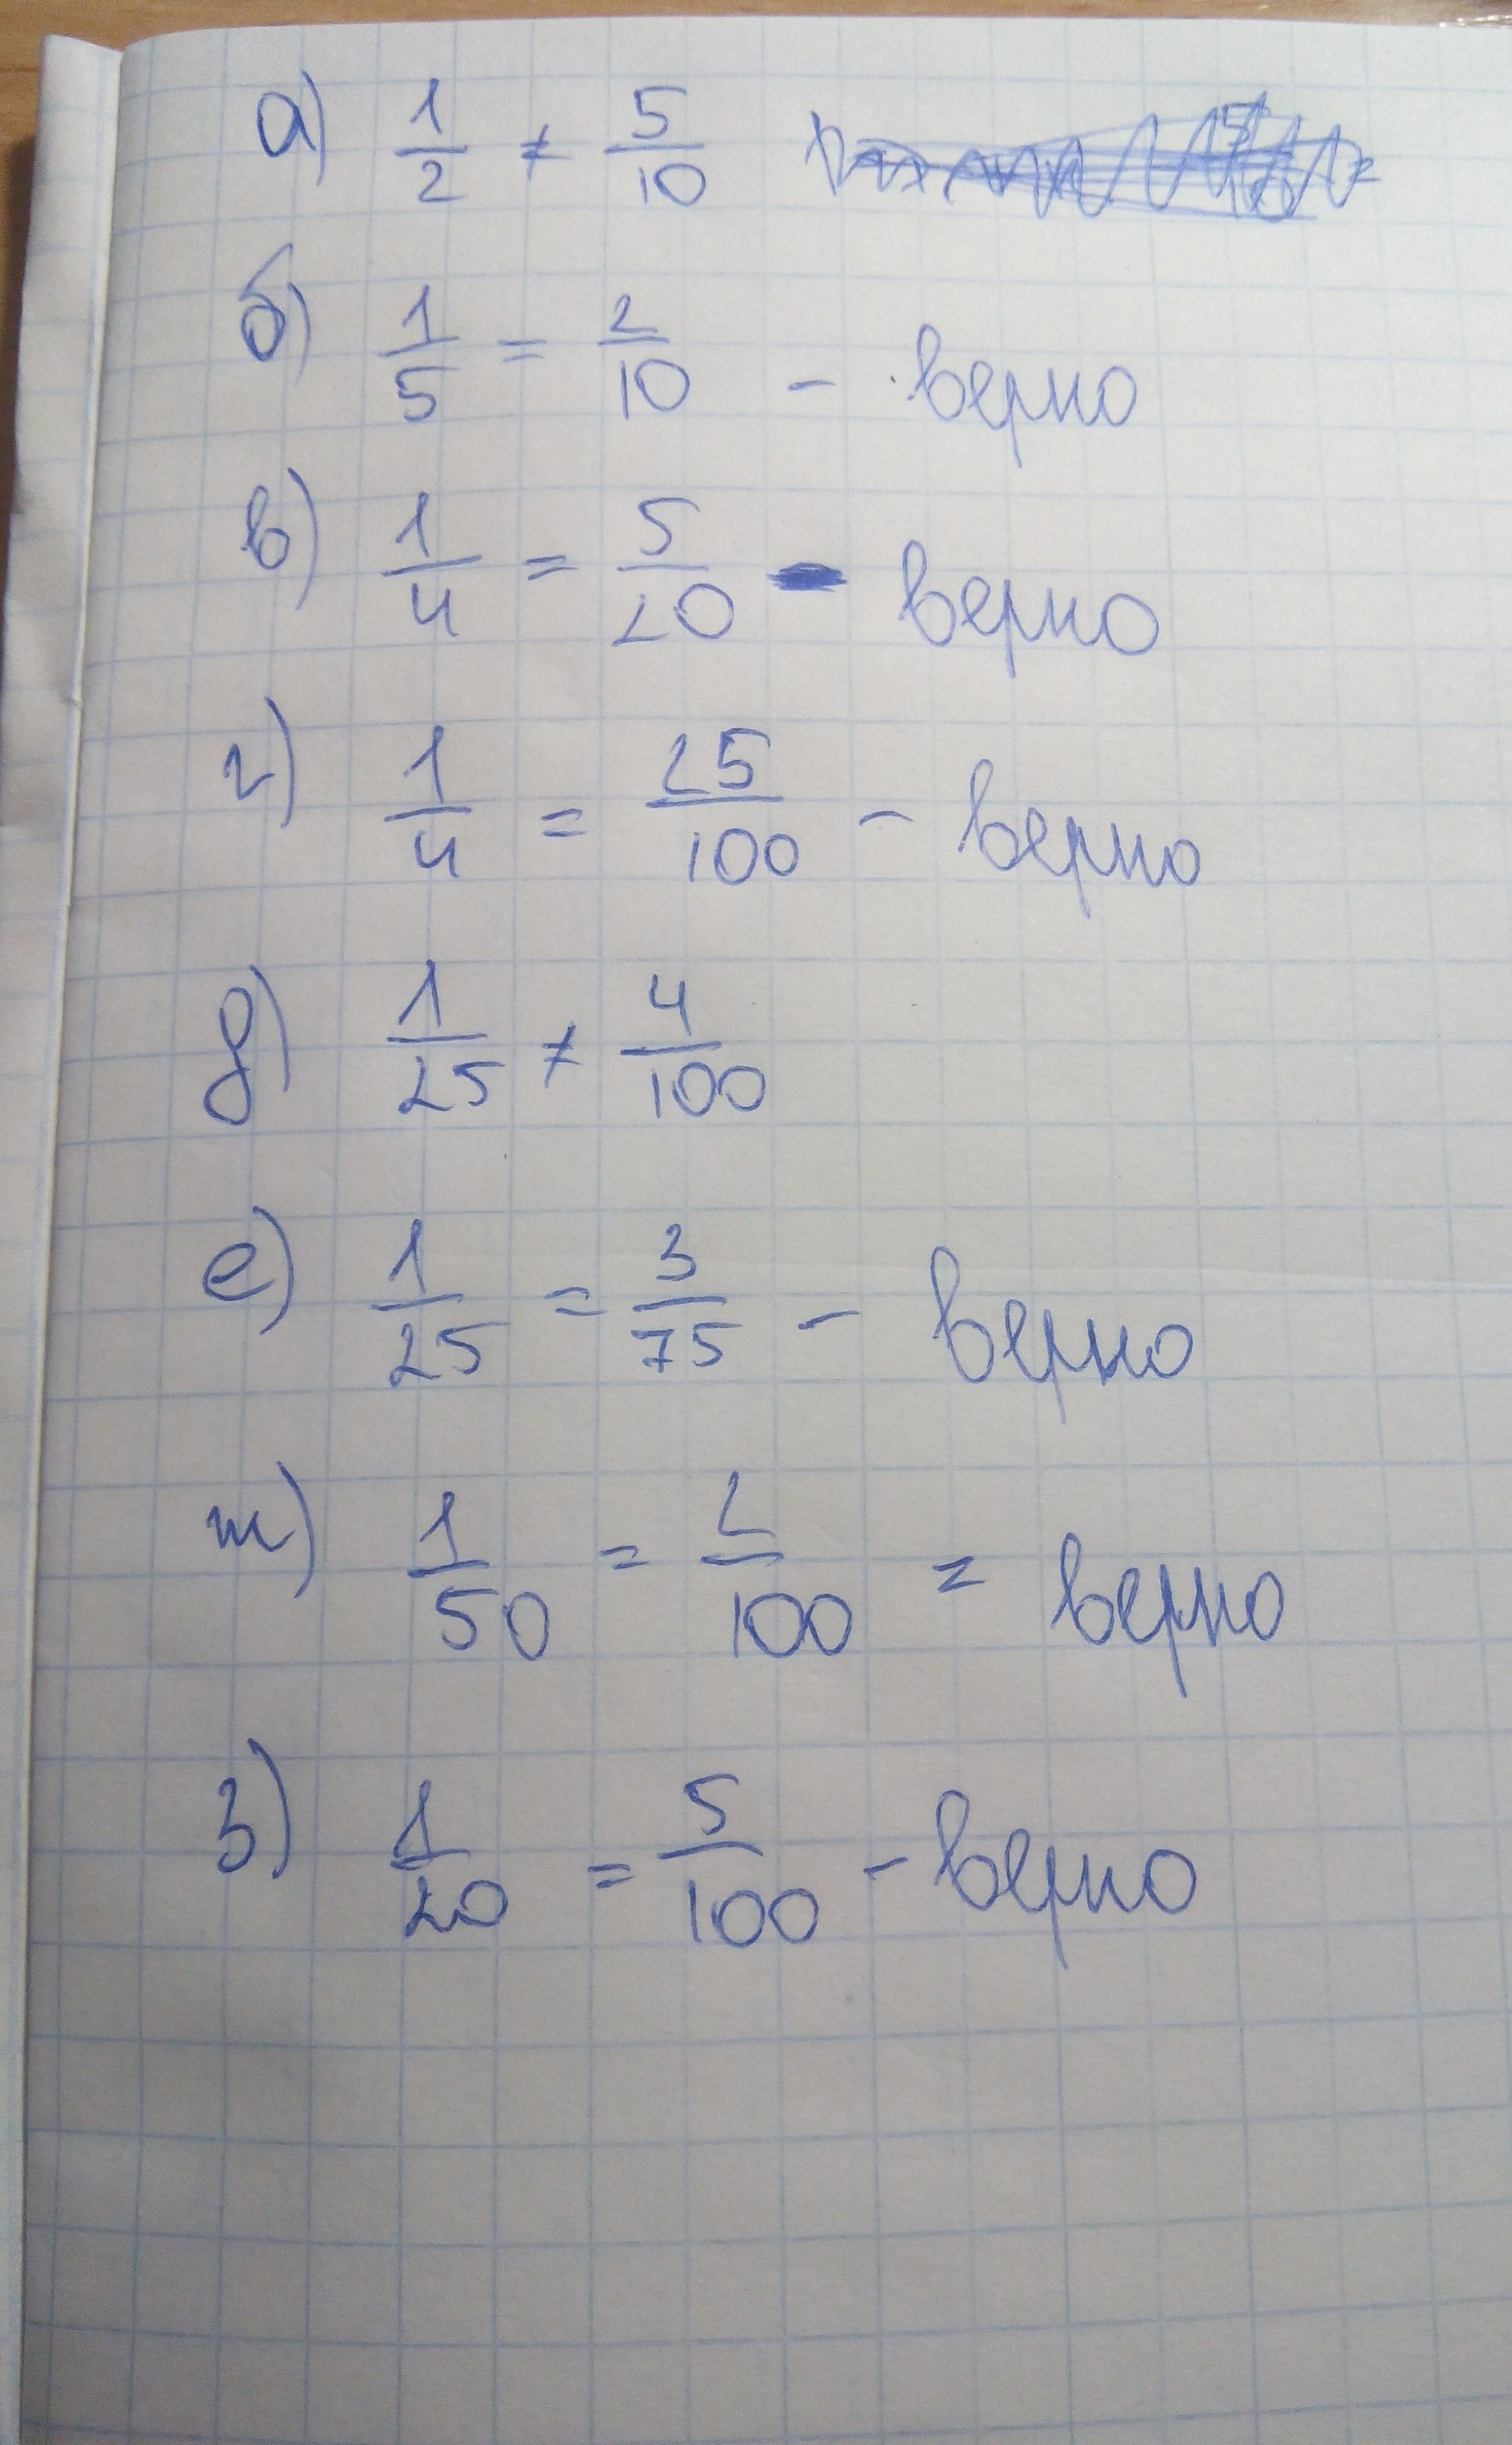 а) 1/2 ≠ 5/10
б) 1/5 = 2/10 - верно
в) 1/4 = 5/20 - верно
г) 1/4 = 25/100 - верно
д) 1/25 ≠ 4/100
е) 1/25 = 3/75 - верно
ж) 1/50 = 2/100 = верно
з) 1/20 = 5/100 - верно